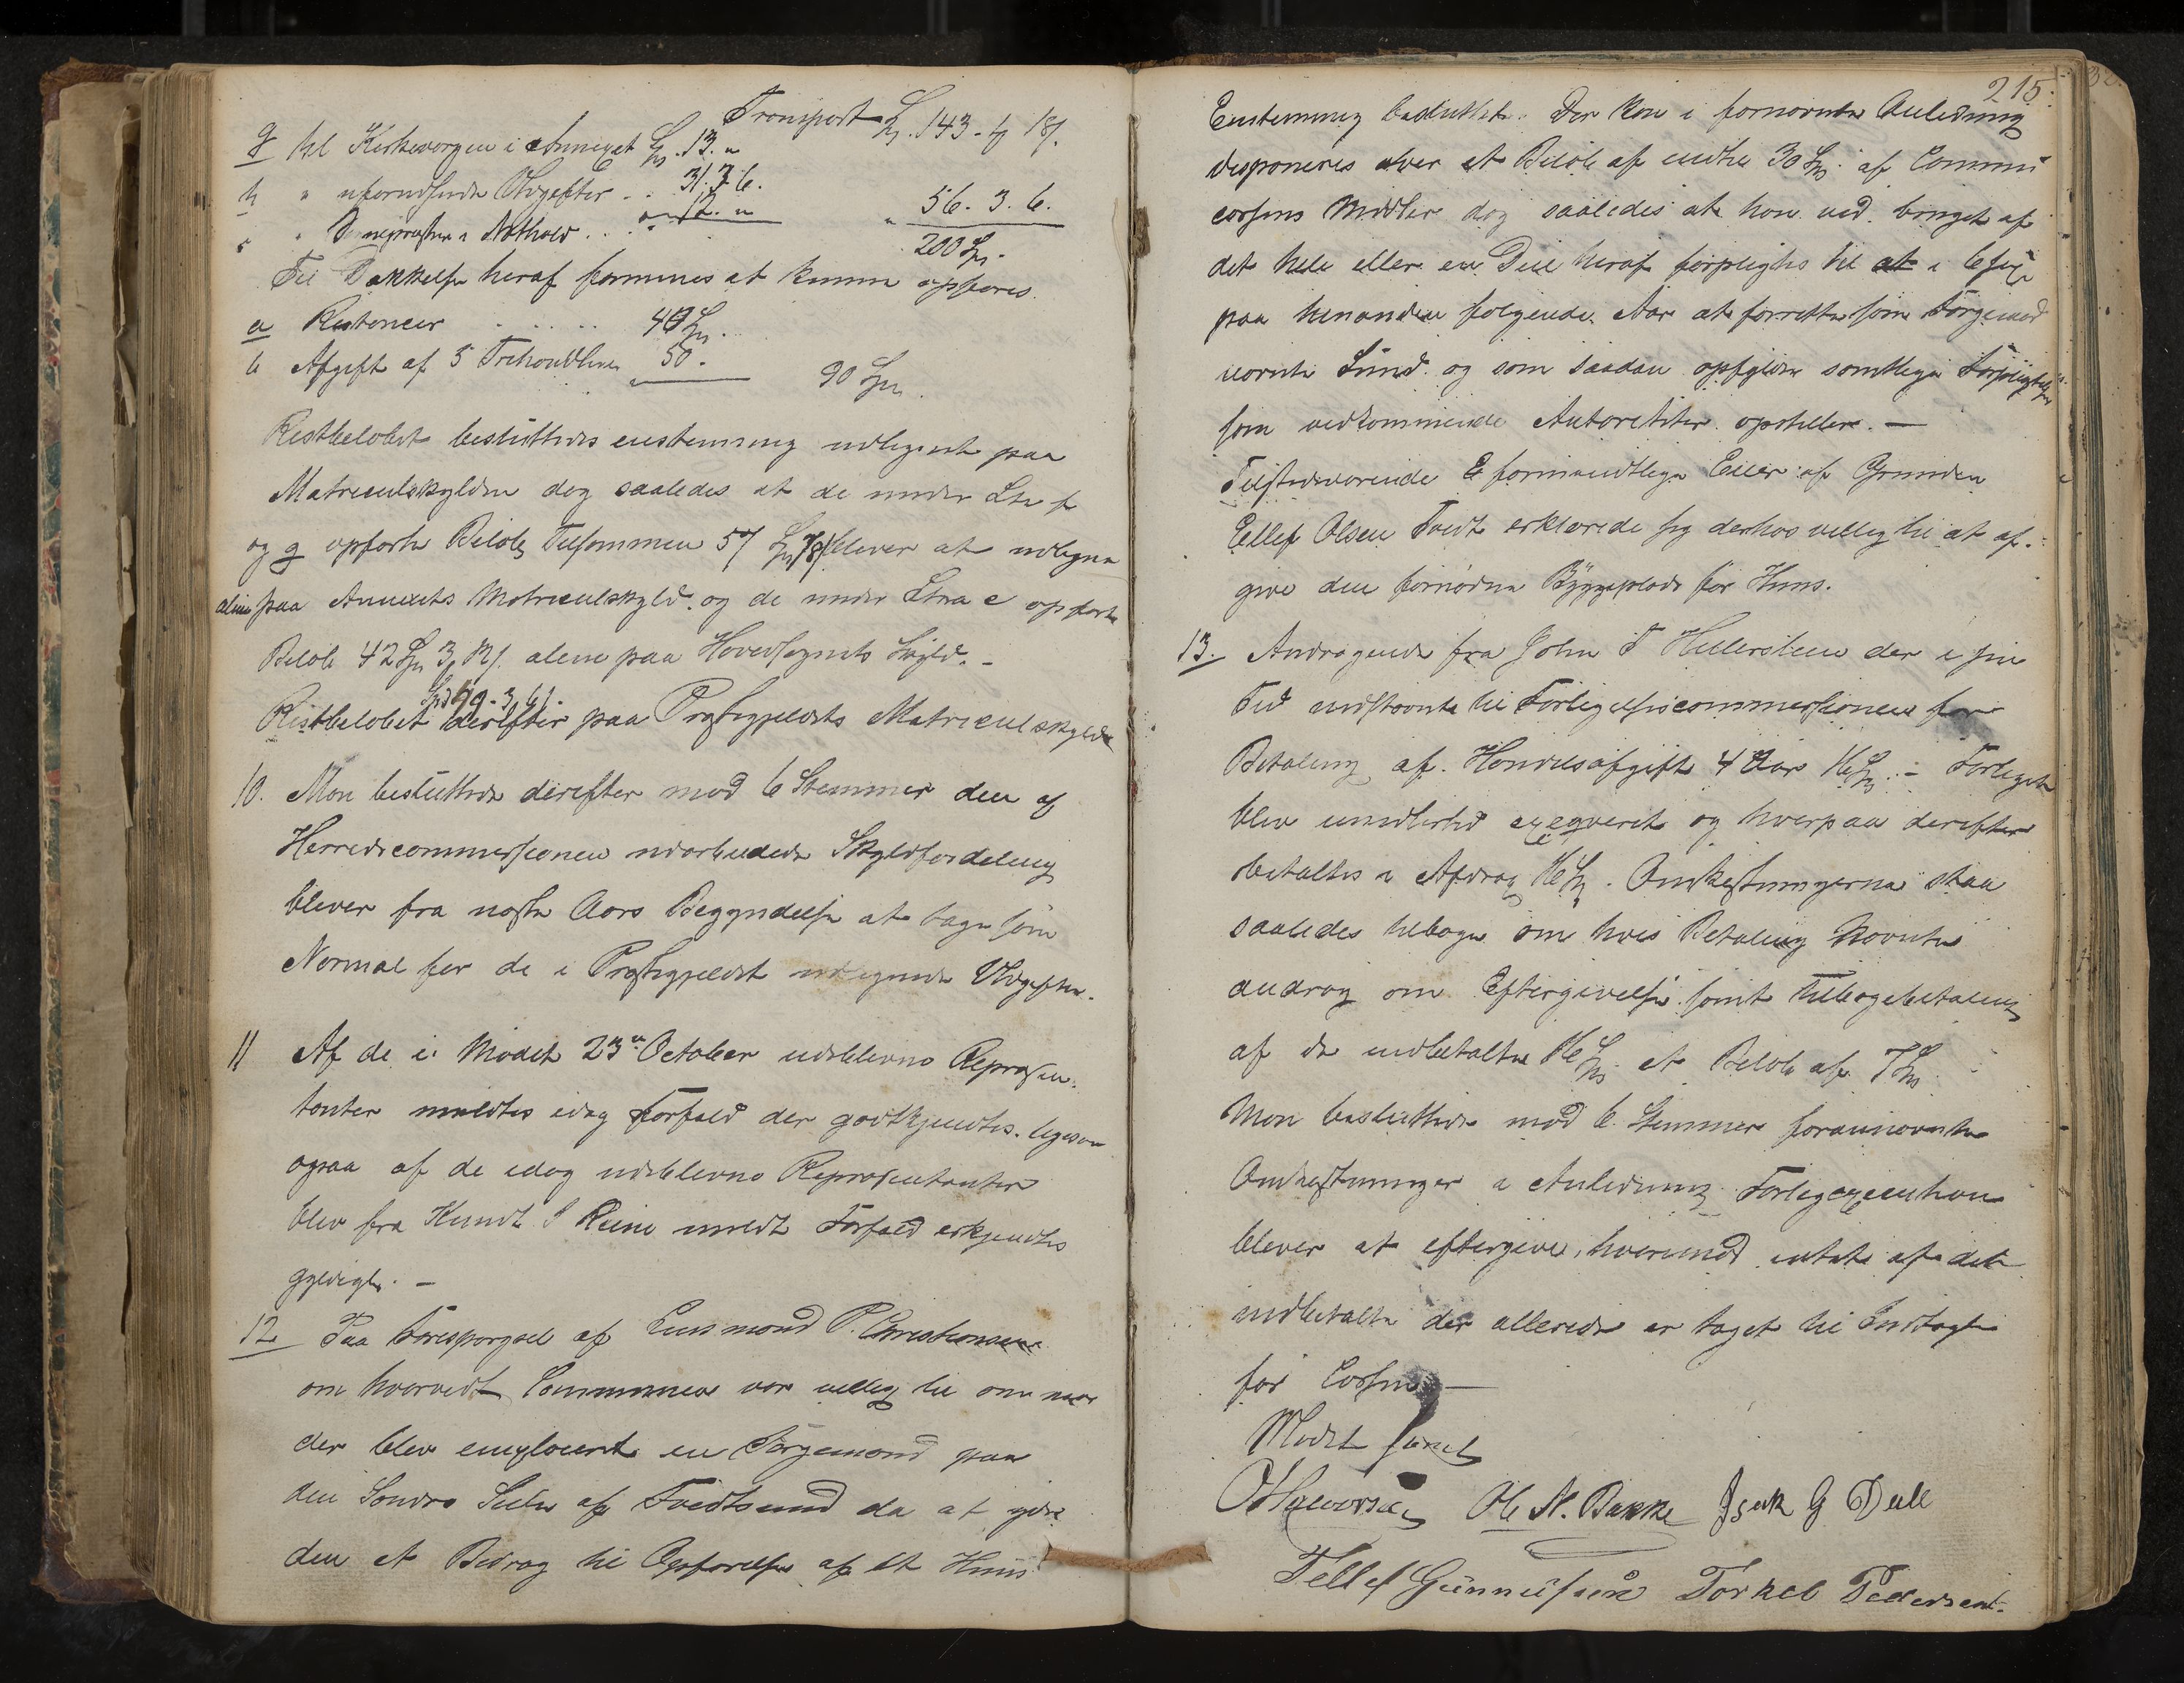 Transport Sp. 143. 4 18/.
g til Kirkevergen i Annexet Sp. 13. "
h " uforudseede Udgifter . . 31. 3. 6.
" . . . 12. " " 56. 3. 6.
200 Sp.
Til Dækkelse heraf formenes at kunne opføres
a Restancer . . . . . 40 Sp.
b Afgift af 5 Trehandlere 50. 90 Sp.
Restbeløbet besluttedes eenstemmig udlignet paa
Matriculskylden dog saaledes at de under Ltr f
og g opførte Beløb tilsammen 57 Sp bliver at udligne
alene paa Annexets Matriculskyld og de under Litra e opførte
Beløb 42 Sp 3 alene paa Hovedsognets Skyld. -
Restbeløbet derefter paa Præstegjeldets Matriculskyld
10. Man besluttede derefter med 6 Stemmer den af
Herredscommissionen udarbeidede Skyldfordeling
bliver fra næste Aars Begyndelse at tage som
Normal for de i Præstegjeldet udlignede Udgifter.
11 Af de i Mødet 23de October udeblevne Repræsen-
tanter meldtes idag Forfald der godkjendtes. ligesom
ogsaa af de idag udeblevne Repræsentanter
blev fra Knud S Reine meldt Forfald erkjendtes
gyldigt. -
12 Paa Forespørgsel af Lensmand P. Christensen
om hvorvidt Communen var villig til om naar
der blev employeret en Færgemand paa
den Søndre Side af Tvedtsund da at yde
den et Bidrag til Opførelse af et Huus
215.
Eenstemmig besluttet: Der kan i fornævnte Anledning
disponeres over et Beløb af indtil 30 Sp. af Commu
cassens Midler dog saaledes at han ved bruget af
det hele eller en Deel heraf forpligtes til at i
paa hinanden følgende Aar at forrette som Færgemand
nævnte Sund og som saadan opfylde samtlige Forpligtelser
som vedkommende Autoriteter opstiller. -
Tilstedeværende Eier af Grunden
Ellef Olsen Tvedt erklærede sig derhos villig til at af-
give den fornødne Byggeplads for Huus.
13. Andragende fra John T Hellersteen der i sin
Tid indstævnte til Forligelsescommissionen for
Betaling af Handelsafgift 4 Aar 16 Sp. - Forliget
blev imidlertid exeqveret og hverpaa derefter
betaltes i Afdrag 16 Sp. Omkostningerne staa
saaledes tilbage om hvis Betaling Nævnte
androg om Eftergivelse samt tilbagebetaling
af de indbetalte 16 Sp. et Beløb af 7 Sp.
Man besluttede med 6 Stemmer forannævnte
Omkostninger i Anledning Forligsexecution
bliver at eftergive, hvorimod intet af det
indbetalte der allerede er taget til Indtægt
for Cassen -
Mødet sluttet
Ole N. Bakke Isak G Dale
Tellef Gunnulfsen Torkel Pedersen.